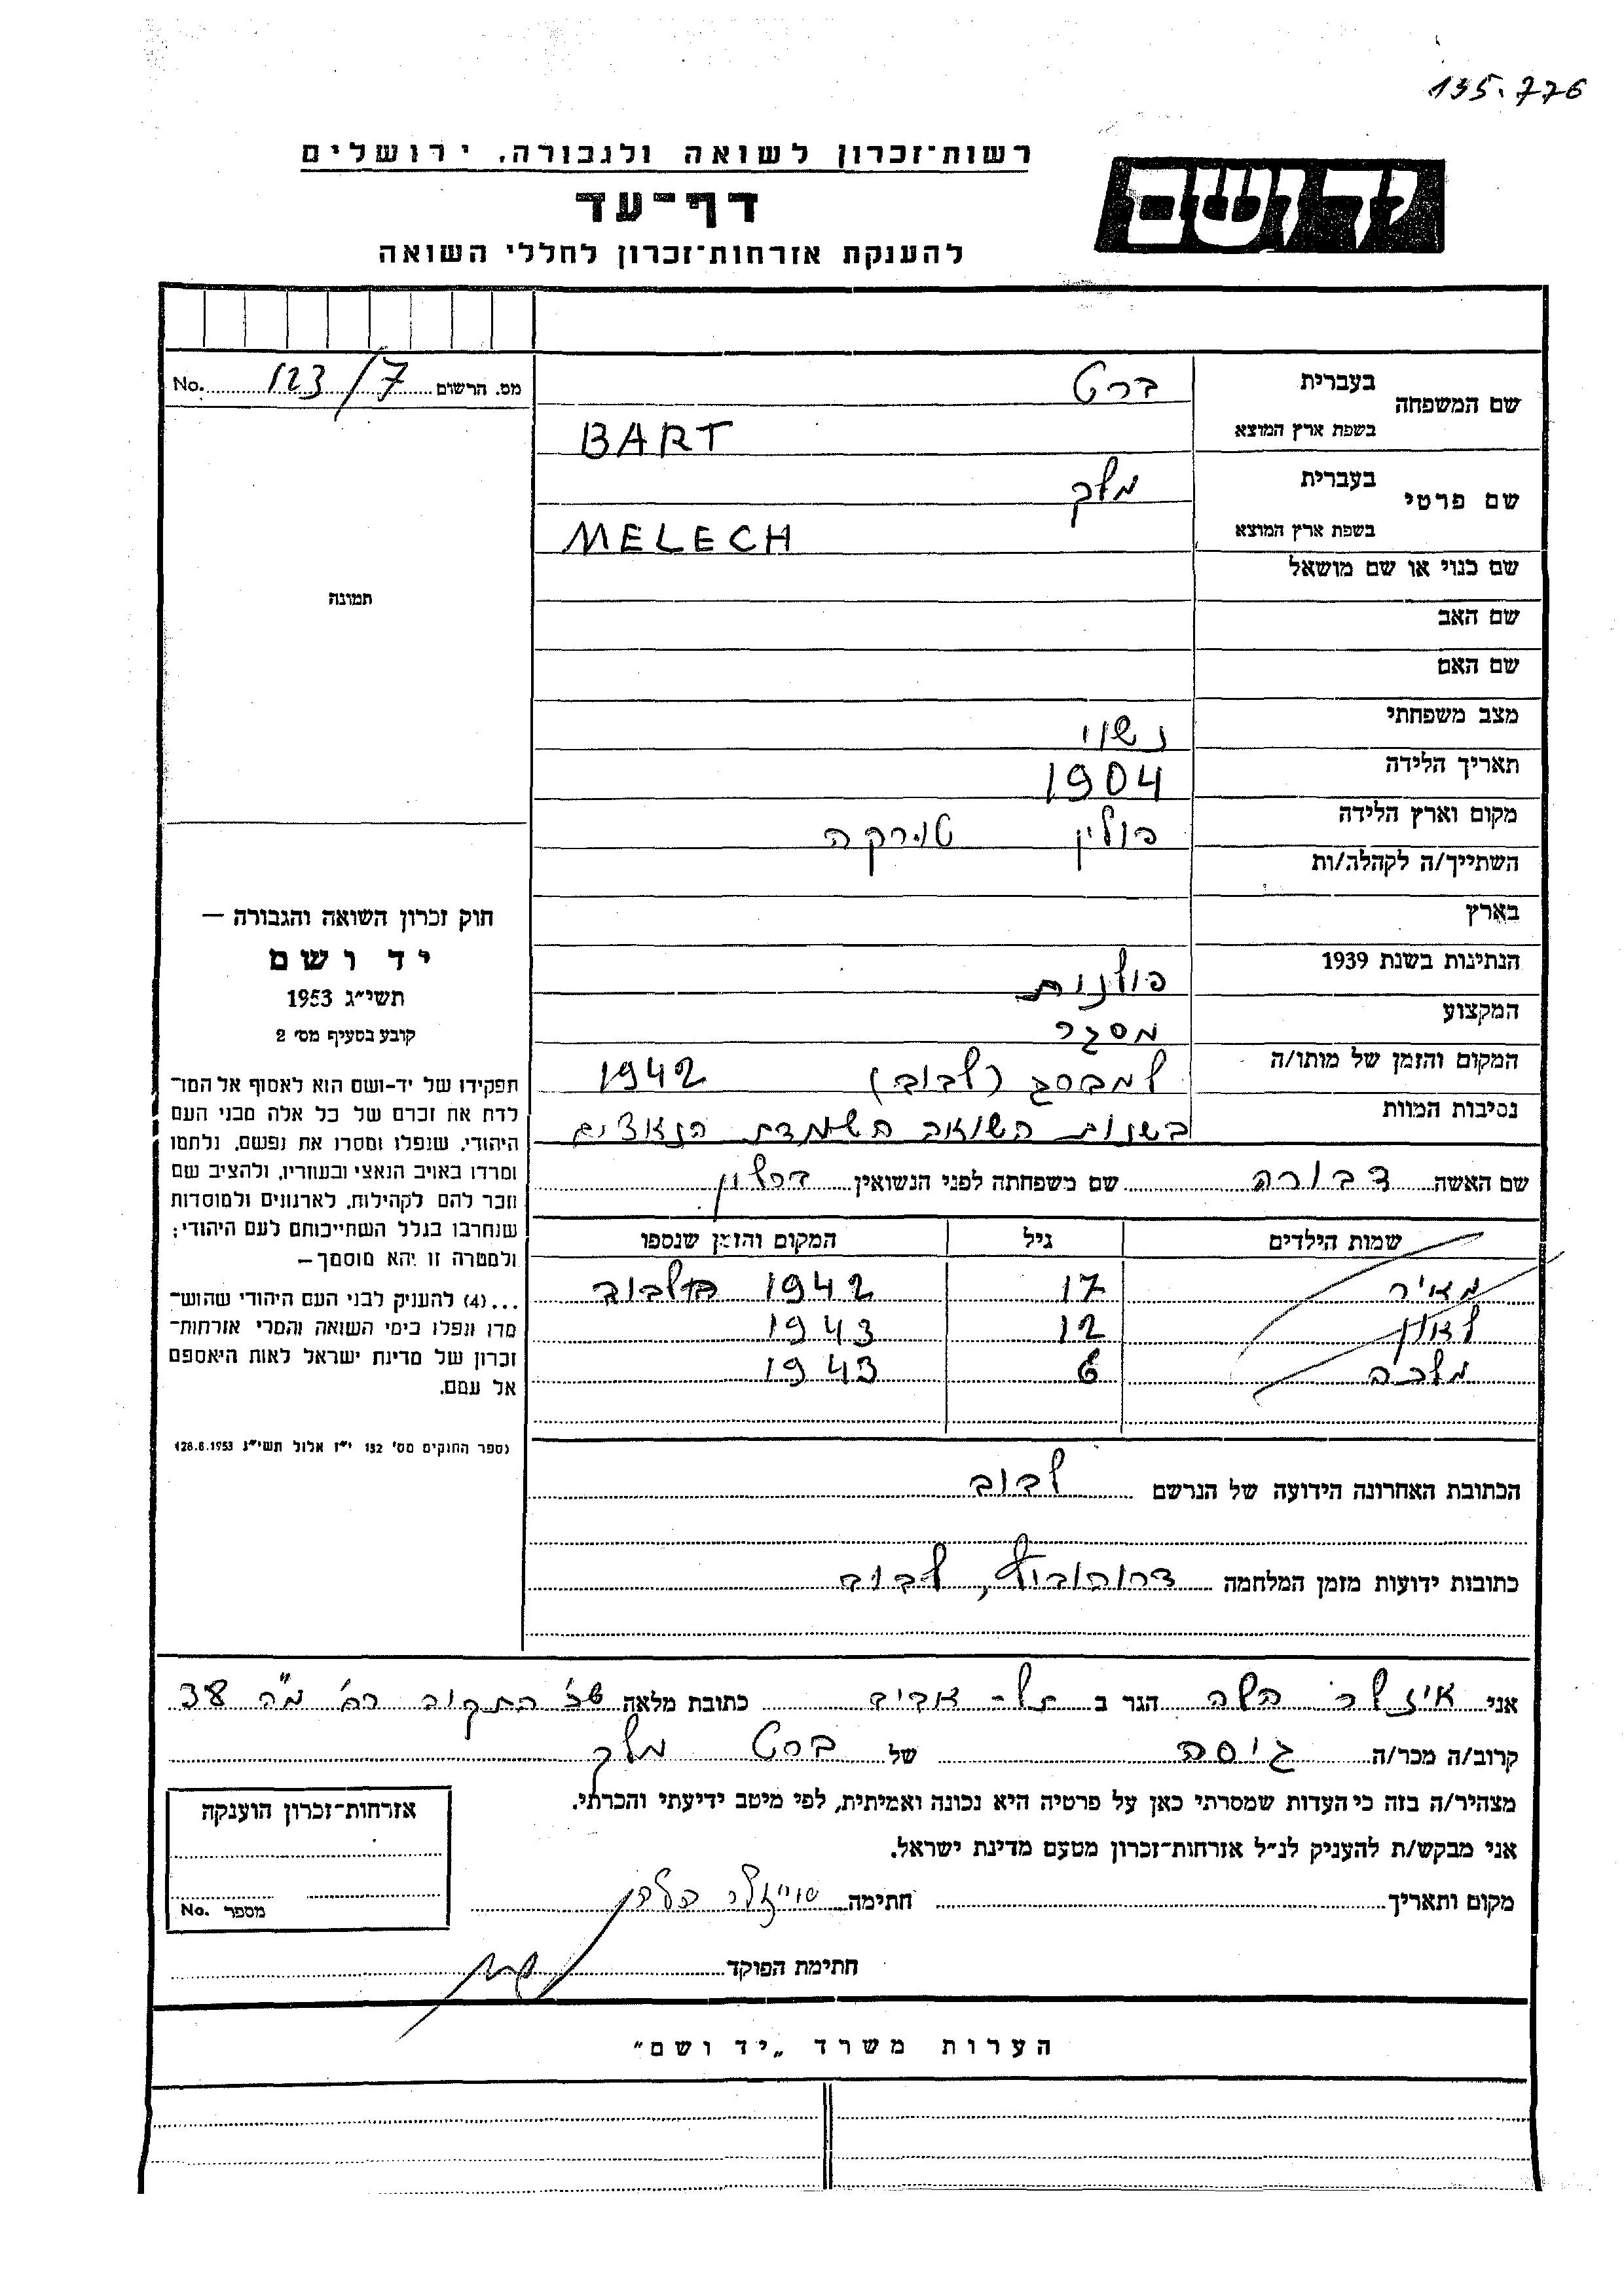 135.776
רשות־זכרון לשואה ולגבורה, ירושלים
יד ושם
דף־עד
להענקת אזרחות־זכרון לחללי השואה
שם המשפחה
בעברית ברט
בשפת ארץ המוצא BART
שם פרטי
בעברית מלך
בשפת ארץ המוצא MELECH
שם כנוי או שם מושאל
שם האב
שם האם
מצב משפחתי נשוי
תאריך הלידה 1904
מקום וארץ הלידה פולין טורקה
השתייך/ה לקהלה/ות
בארץ
הנתינות בשנת 1939 פולנית
המקצוע מסגר
המקום והזמן של מותו/ה למברג (לבוב) 1942
נסיבות המוות בשנות השואה השמדת הנאצים
שם האשה דבורה שם משפחתה לפני הנשואין
שמות הילדים גיל המקום והזמן שנספו
מאיר 17 1942 בלבוב
12 1943
מלכה 6 1943
הכתובת האחרונה הידועה של הנרשם לבוב
כתובות ידועות מזמן המלחמה דרוהוביץ, לבוב
מס. הרשום 123/7 No.
תמונה
חוק זכרון השואה והגבורה —
יד ושם
תשי״ג 1953
קובע בסעיף מס׳ 2
תפקידו של יד-ושם הוא לאסוף אל המו־
לדת את זכרם של כל אלה מבני העם
היהודי, שנפלו ומסרו את נפשם, נלחמו
ומרדו באויב הנאצי ובעוזריו, ולהציב שם
וזכר להם לקהילות, לארגונים ולמוסדות
שנחרבו בגלל השתייכותם לעם היהודי;
ולמטרה זו יהא מוסמך —
...(4) להעניק לבני העם היהודי שהוש־
מדו ונפלו בימי השואה והמרי אזרחות־
זכרון של מדינת ישראל לאות היאספם
אל עמם.
(ספר החוקים מס׳ 132 י״ז אלול תשי״ג 28.8.1953)
אני אייזלר הלה הגר ב תל-אביב כתובת מלאה שכ׳ התקוה רח׳ מ״ה 38
קרוב/ה מכר/ה גיסה של ברט מלך
מצהיר/ה בזה כי העדות שמסרתי כאן על פרטיה היא נכונה ואמיתית, לפי מיטב ידיעתי והכרתי.
אני מבקש/ת להעניק לנ״ל אזרחות־זכרון מטעם מדינת ישראל.
מקום ותאריך חתימה
חתימת הפוקד
אזרחות־זכרון הוענקה
מספר No.
הערות משרד „יד ושם״